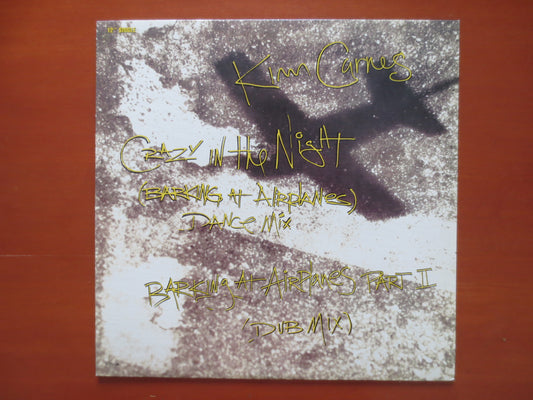 12" SINGLE
Kim Carnes
CRAZY IN the Night
(BARKING At AiRplanes)
DANCE Mix
BARKiNg At AiRplanes, PARt II
(DUB MiX)